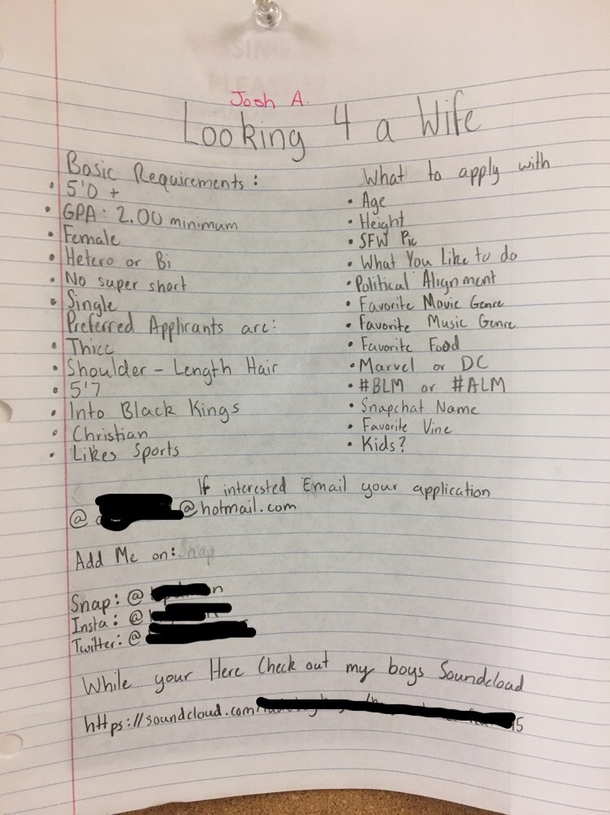 Josh A.
Looking 4 a Wife
Basic Requirements:
• 5'0 +
• GPA: 2.00 minimum
• Female
• Hetero or Bi
• No super short
• Single
Preferred Applicants are:
• Thicc
• Shoulder-Length Hair
• 5'7
• Into Black Kings
• Christian
• Likes Sports
What to apply with
• Age
• Height
• SFW Pic
• What You Like to do
• Political Alignment
• Favorite Movie Genre
• Favorite Music Genre
• Favorite Food
• Marvel or DC
• #BLM or #ALM
• Snapchat Name
• Favorite Vine
• Kids?
If interested Email your application
@ @hotmail.com
Add Me on: Snap
Snap: @
Insta: @
Twitter: @
While your Here Check out my boys Soundcloud
https://soundcloud.com